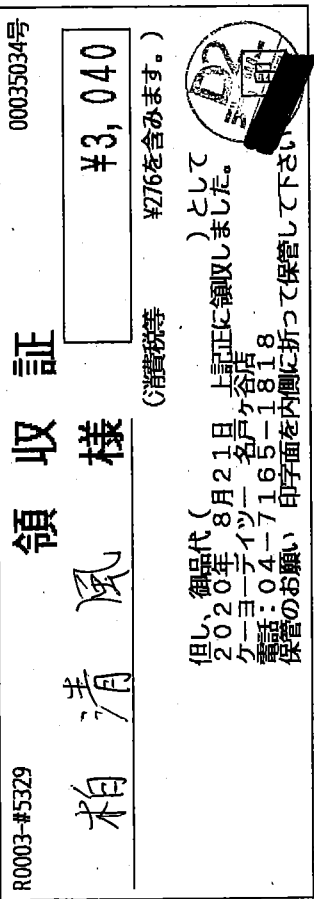 R0003-#5329
00035034号
領収証
柏 清風 様
¥3,040
(消費税等 ¥276を含みます。)
但し、御品代 ( )として
2020年 8月21日 上記正に領収しました。
ケーヨーデイツー 名戸ケ谷店
電話:04-7165-1818
保管のお願い 印字面を内側に折って保管して下さい
D2